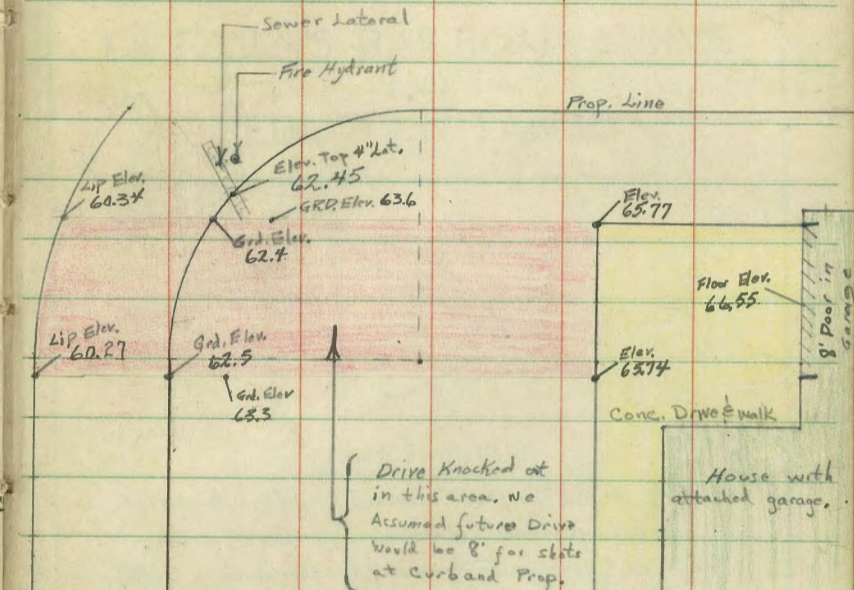 Sewer Lateral
Fire Hydrant
Prop. Line
Elev. Top 4" Lat.
62.45
Lip Elev.
60.34
GRD. Elev. 63.6
Grd. Elev.
62.4
Elev.
65.77
Floor Elev.
66.55
8' Door in
Garage
Lip Elev.
60.27
Grd. Elev.
62.5
Grd. Elev
63.3
Elev.
65.74
Conc. Drive & walk
Drive Knocked out
in this area. We
Assumed future Drive
would be 8' for shots
at Curb and Prop.
House with
attached garage.